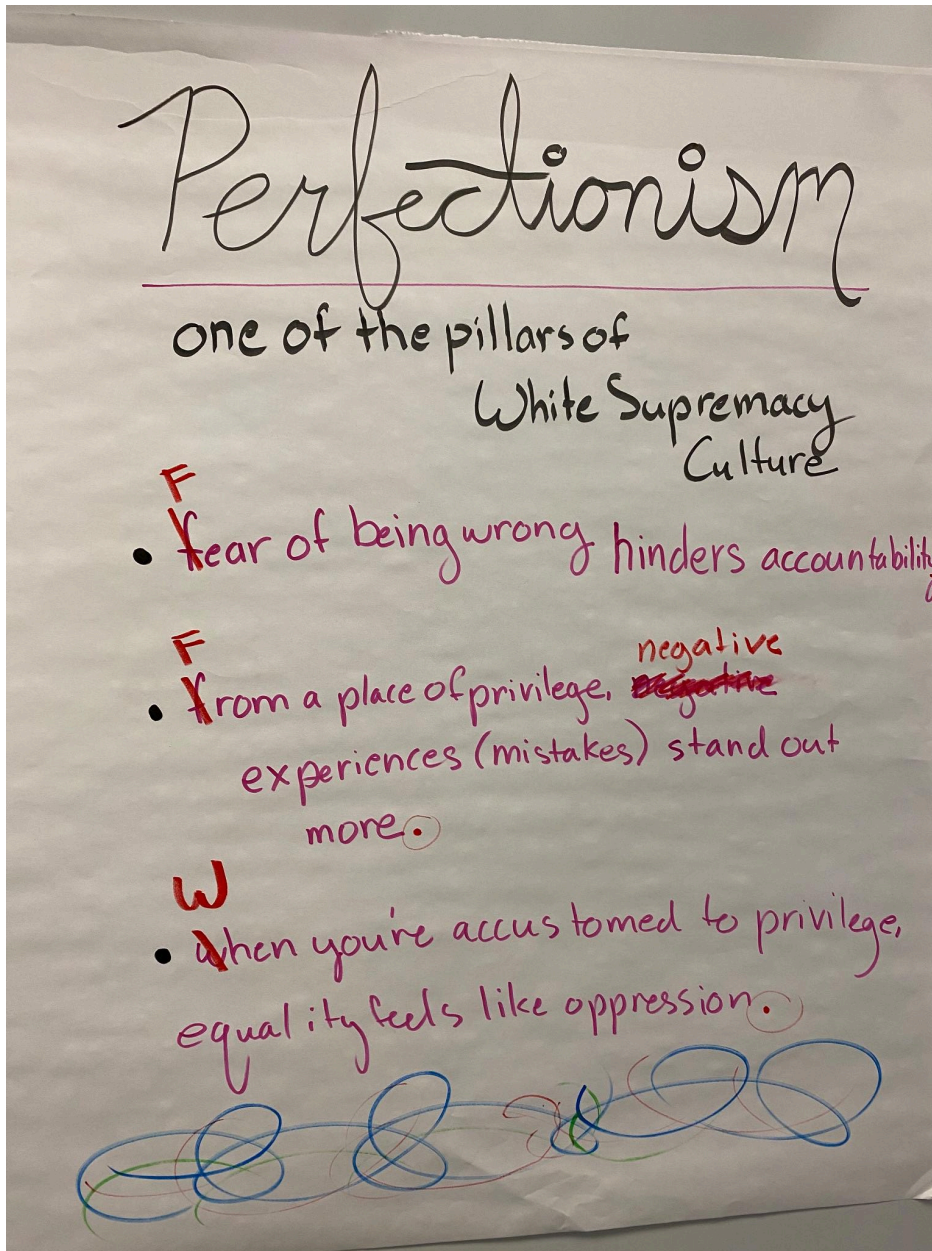 Perfectionism
one of the pillars of
White Supremacy
Culture
F
• fear of being wrong hinders accountability
F
negative
• from a place of privilege, negative
experiences (mistakes) stand out
more.
W
• when you're accustomed to privilege,
equality feels like oppression.